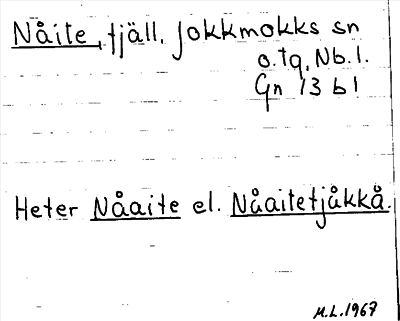 Nåite, fjäll, Jokkmokks sn
o. tg, Nb. l.
Gn 13 b1
Heter Nåaite el. Nåaitetjåkkå.
M.L. 1967